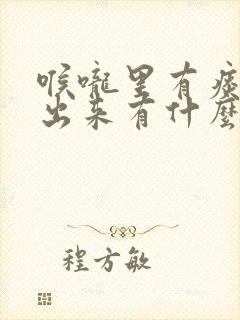 喉嚨里有痰
出来有什麼
程方敏